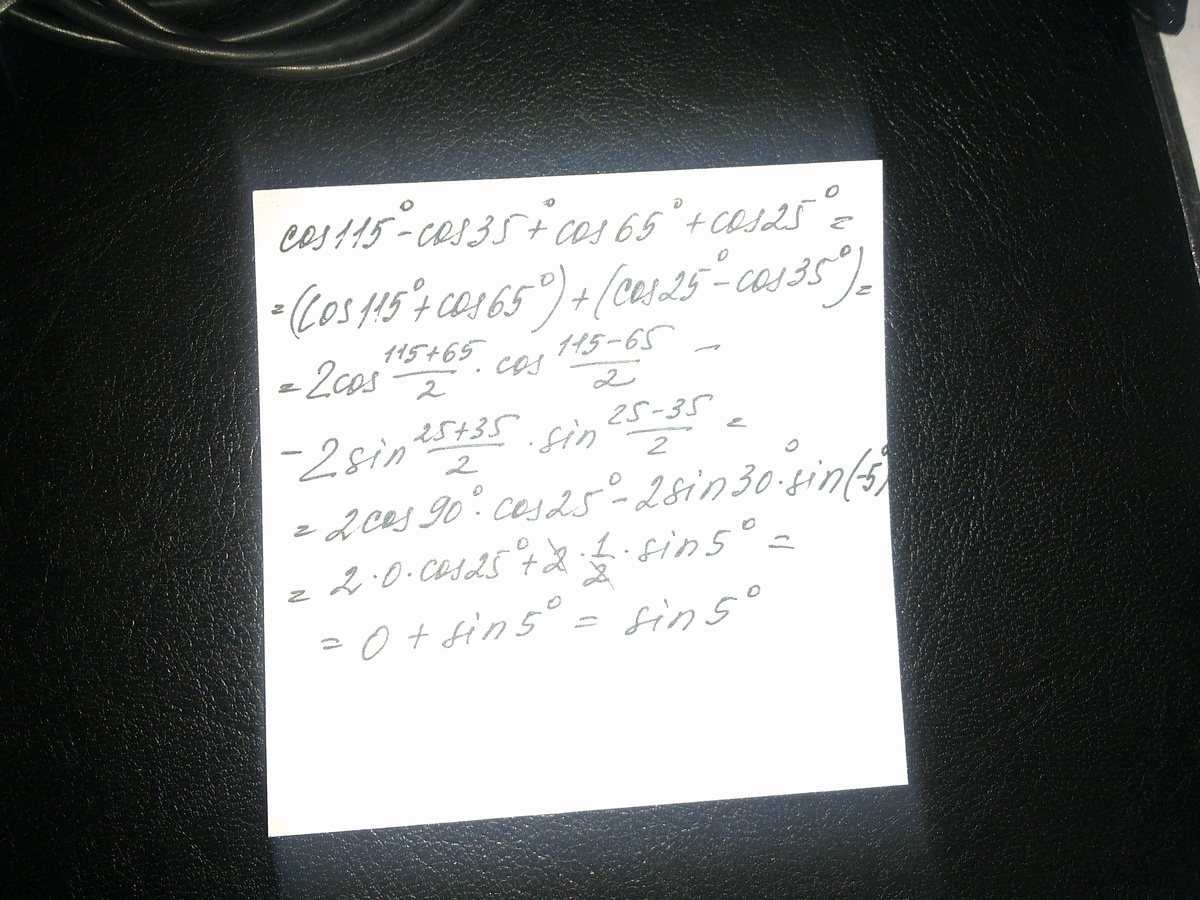 cos115° - cos35° + cos65° + cos25° =
= (cos115° + cos65°) + (cos25° - cos35°) =
= 2cos (115+65)/2 · cos (115-65)/2 -
- 2sin (25+35)/2 · sin (25-35)/2 =
= 2cos90° · cos25° - 2sin30° · sin(-5°)
= 2 · 0 · cos25° + 2 · 1/2 · sin5° =
= 0 + sin5° = sin5°